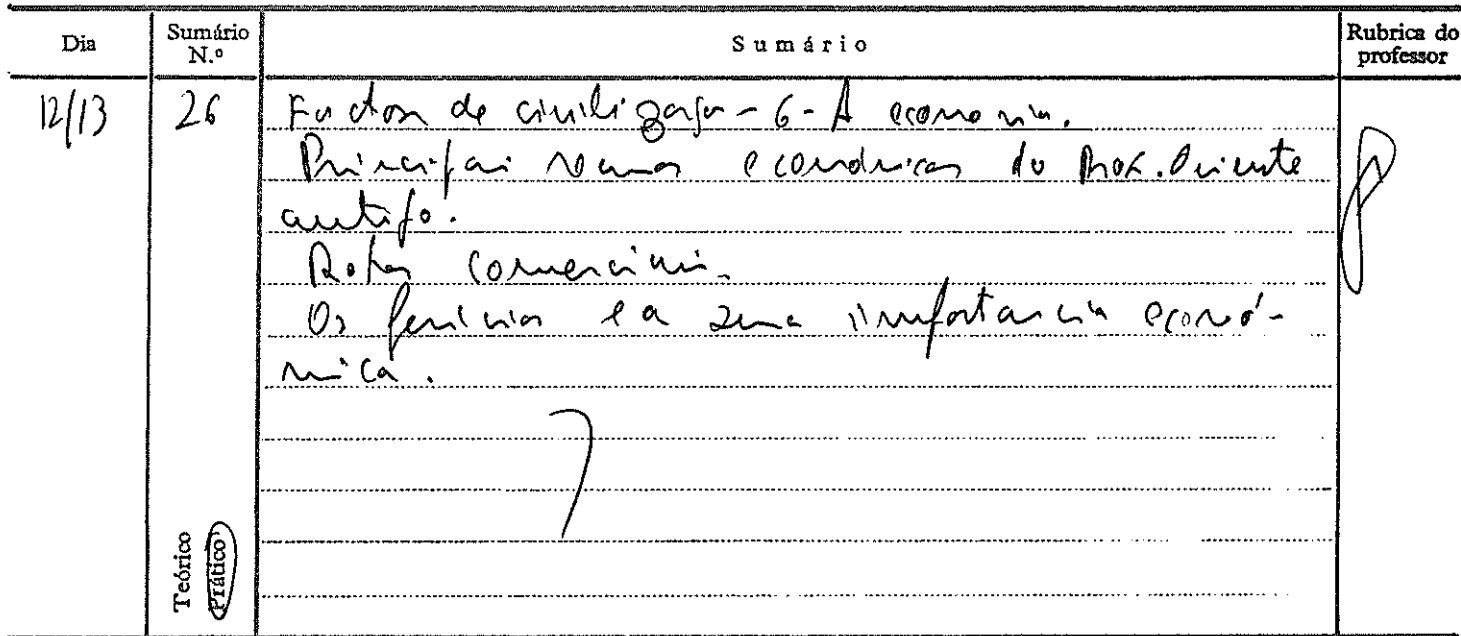 Dia
Sumário N.º
Sumário
Rubrica do professor
12/13
26
Factores de civilização - 6 - A economia.
Principais recursos económicos do Próx. Oriente
antigo.
Rotas comerciais.
Os fenícios e a sua importância econó-
mica.
Teórico
Prático